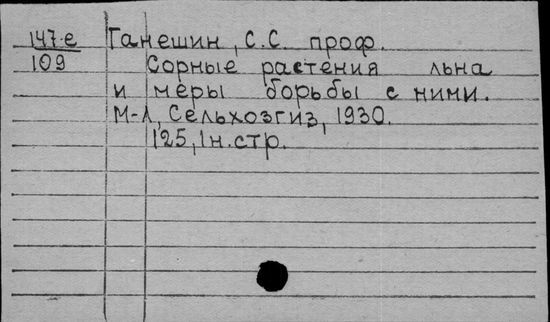 147-е Ганешин, С.С. проф.
109 Сорные растения льна
и меры борьбы с ними.
М-Л, Сельхозгиз, 1930.
125, 1н.стр.